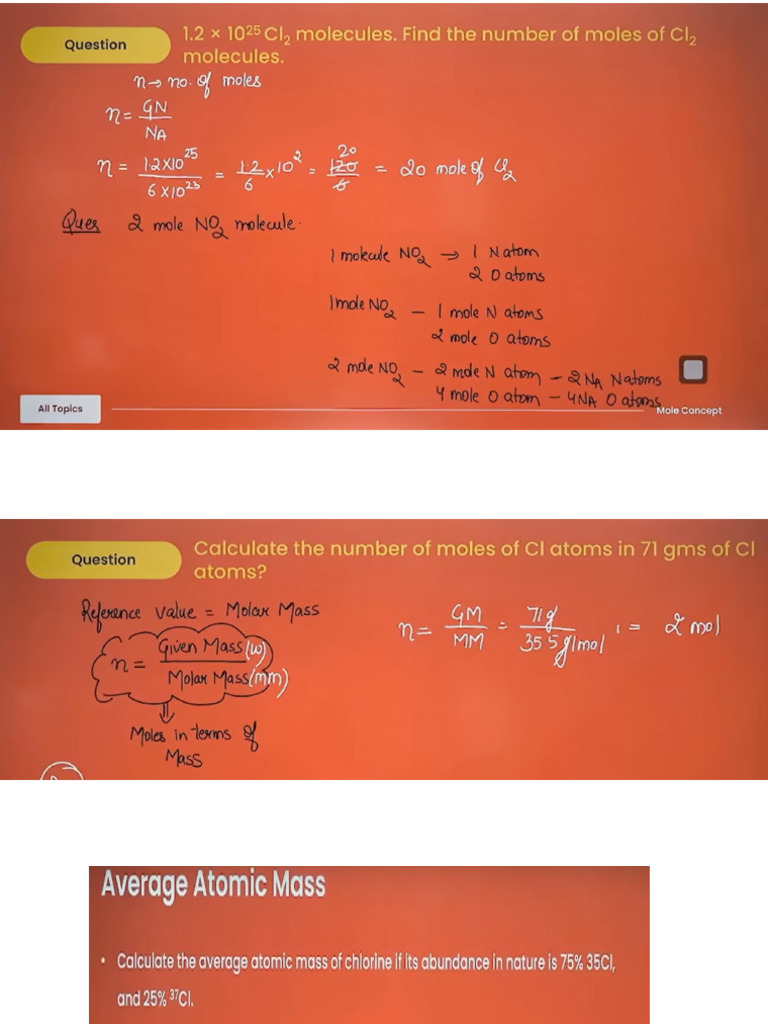 Question
1.2 × 10²⁵ Cl₂ molecules. Find the number of moles of Cl₂
molecules.
n → no. of moles
n = GN / NA
n = 1.2×10²⁵ / 6×10²³ = 1.2/6 × 10² = 120/6 20 = 20 mole of Cl₂
Ques 2 mole NO₂ molecule.
1 molecule NO₂ → 1 N atom
2 O atoms
1 mole NO₂ – 1 mole N atoms
2 mole O atoms
2 mole NO₂ – 2 mole N atom – 2NA N atoms
4 mole O atom – 4NA O atoms
All Topics
Mole Concept
Question
Calculate the number of moles of Cl atoms in 71 gms of Cl
atoms?
Reference value = Molar Mass
n = Given Mass (w) / Molar Mass (mm)
n = GM / MM = 71g / 35.5 g/mol = 2 mol
⇓
Moles in terms of
Mass
Average Atomic Mass
• Calculate the average atomic mass of chlorine if its abundance in nature is 75% 35Cl,
and 25% ³⁷Cl.